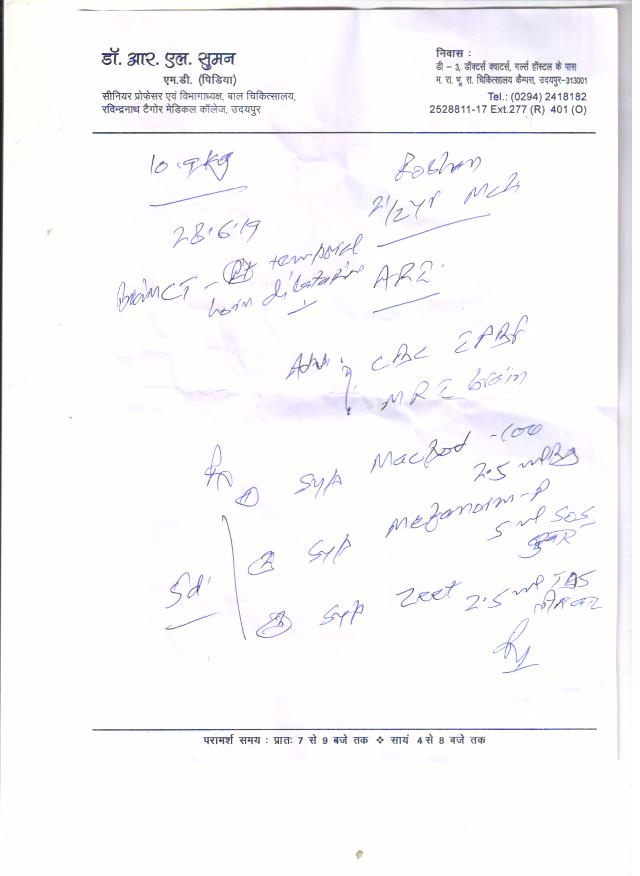 डॉ. आर. एल. सुमन
एम.डी. (पिडिया)
सीनियर प्रोफेसर एवं विभागाध्यक्ष, बाल चिकित्सालय,
रविन्द्रनाथ टैगोर मेडिकल कॉलेज, उदयपुर
निवास :
डी – 3, डॉक्टर्स क्वाटर्स, गर्ल्स हॉस्टल के पास
म. रा. भू. रा. चिकित्सालय कैम्पस, उदयपुर-313001
Tel.: (0294) 2418182
2528811-17 Ext.277 (R) 401 (O)
10.9 kg
Roshan
2 1/2 yr Mch
28.6.19
Brain CT - temporal
horn dilatation
ARI
Adv.
CBC PBF
MRI brain
① Syp -100
2.5 ml
② Syp -P
5 ml SOS
5d
③ Syp Zeet 2.5 ml TDS
परामर्श समय : प्रातः 7 से 9 बजे तक ❖ सायं 4 से 8 बजे तक